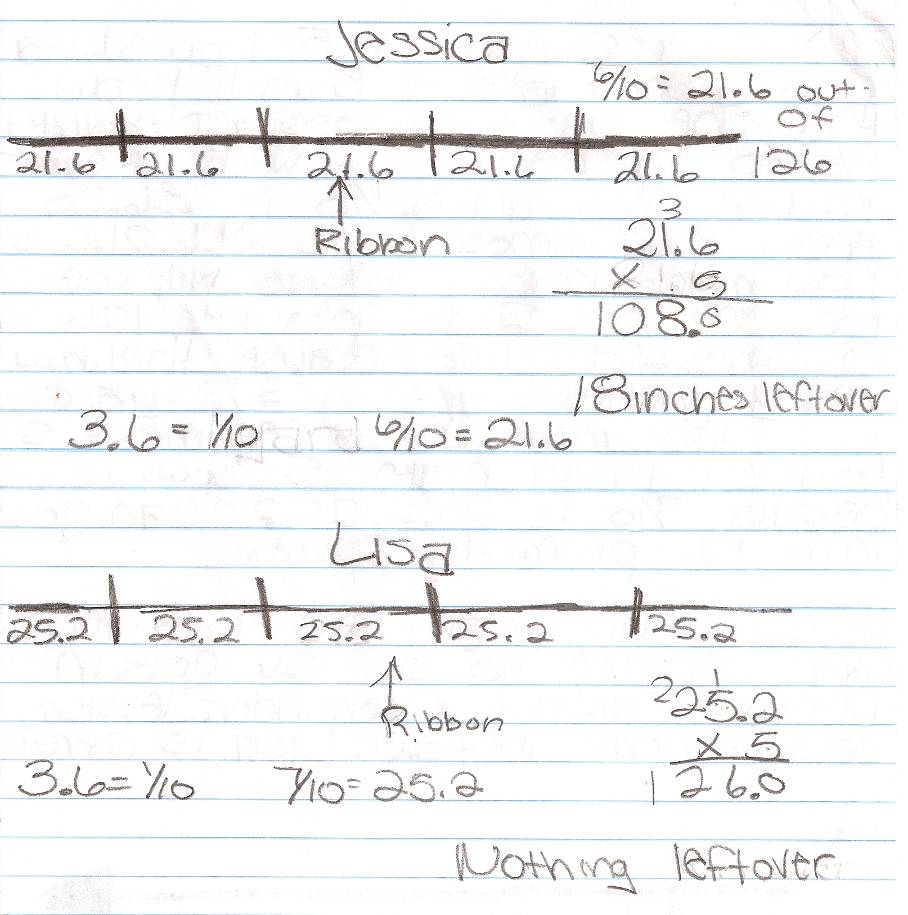 Jessica
6/10 = 21.6 out
of
126
21.6 21.6 21.6 21.6 21.6
Ribbon
3
21.6
x 5
108.0
18 inches leftover
3.6 = 1/10 6/10 = 21.6
Lisa
25.2 25.2 25.2 25.2 25.2
Ribbon
2 1
25.2
x 5
126.0
3.6 = 1/10 7/10 = 25.2
Nothing leftover